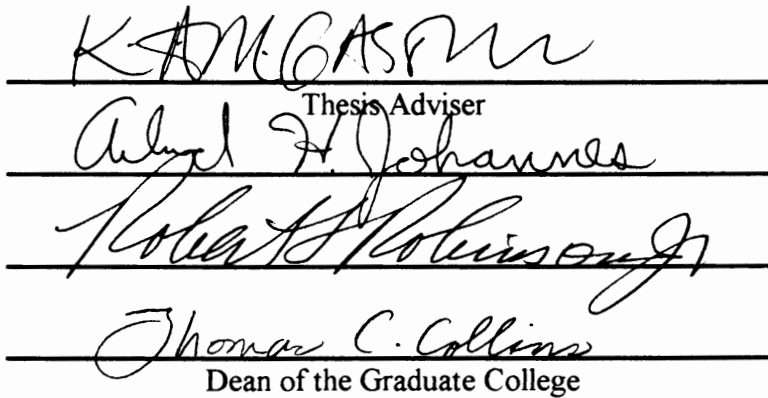 K.A.M. GASEM
Thesis Adviser
Arland H. Johannes
Robert L Robinson Jr
Thomas C. Collins
Dean of the Graduate College